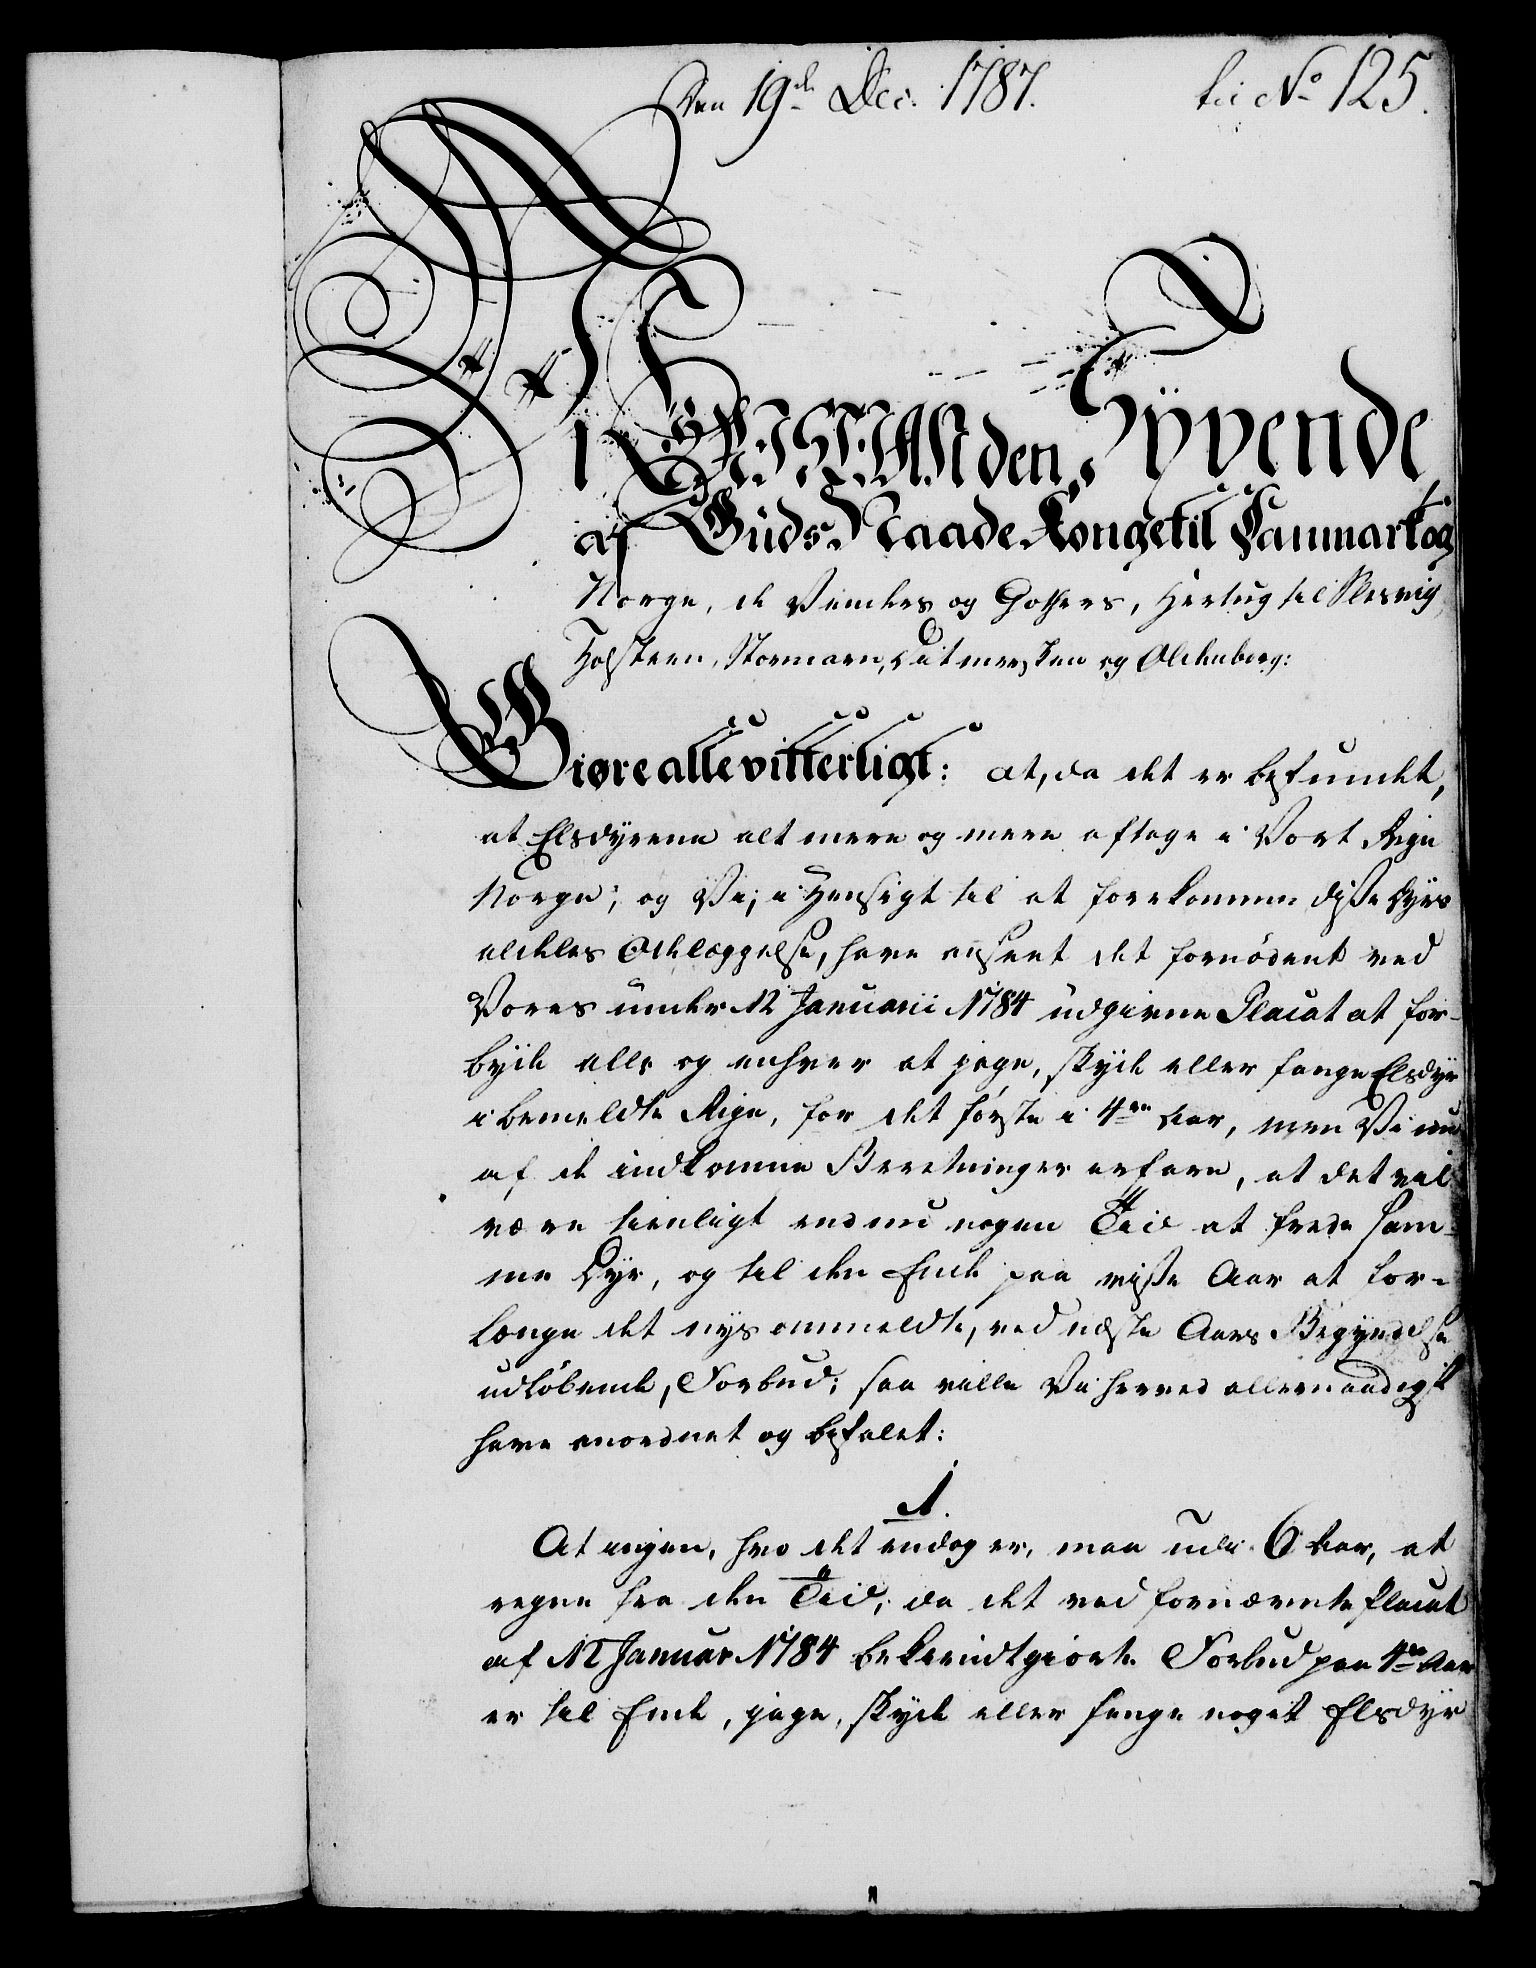 Den 19de Dec: 1787.
til No 125.
Wi CHRISTIAN den Syvende
af Guds Naade Konge til Danmark og
Norge, de Venders og Gothers, Hertug til Slesvig
Holsteen, Stormarn, Ditmersken og Oldenborg:
Giøre alle vitterligt: at, da det er befundet,
at Elsdyrene alt mere og mere aftage i Vort Rige
Norge; og Vi, i Hensigt til at forekomme disse Dyrs
aldeles Ødelæggelse, have anseet det fornødent ved
Vores under 12 Januarii 1784 udgivne Placat at for-
byde alle og enhver at jage, skyde eller fange Elsdyr
i bemeldte Rige, for det første i 4re Aar, men Vi nu
af de indkomne Beretninger erfare, at det vil
være tienligt endnu nogen Tid at frede sam-
me Dyr, og til den Ende paa visse Aar at for-
længe det nysanmeldte, ved næste Aars Begyndelse
udløbende, Forbud; saa ville Vi herved allernaadigst
have anordnet og befalet:
1.
At ingen, hvo det endog er, maa udi 6 Aar, at
regne fra den Tid, da det ved fornævnte Placat
af 12 Januar 1784 bekiendtgiorte Forbud paa 4re Aar
er til Ende, jage, skyde eller fange noget Elsdyr